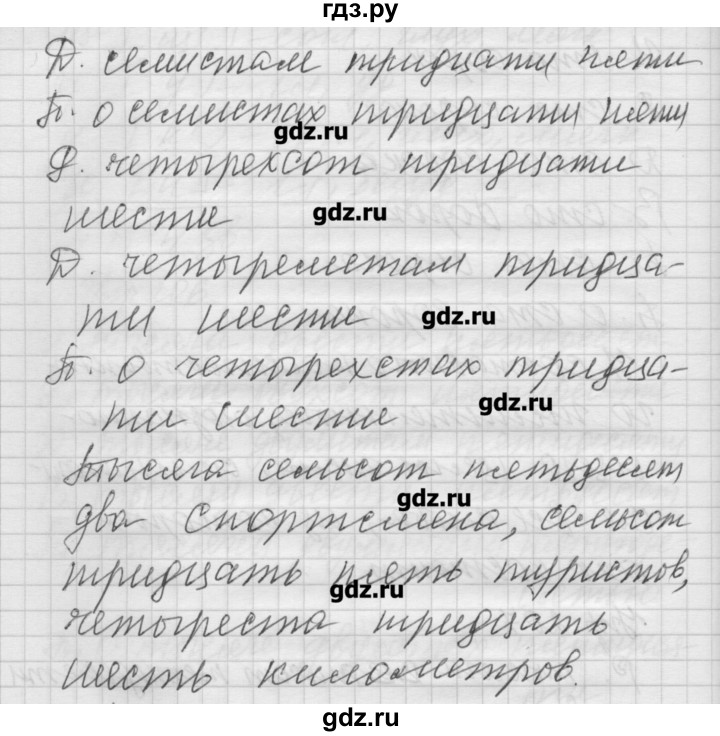 гдз.ру
Д. семистам тридцати пяти
П. о семистах тридцати пяти
gdz.ru
Р. четырехсот тридцати
шести
gdz.ru
Д. четыремстам тридца-
ти шести
gdz.ru
П. о четырехстах тридца-
ти шести
gdz.ru
Тысяча семьсот пятьдесят
gdz.ru
два спортсмена, семьсот
тридцать пять туристов,
gdz.ru
четыреста тридцать
шесть километров.
gdz.ru